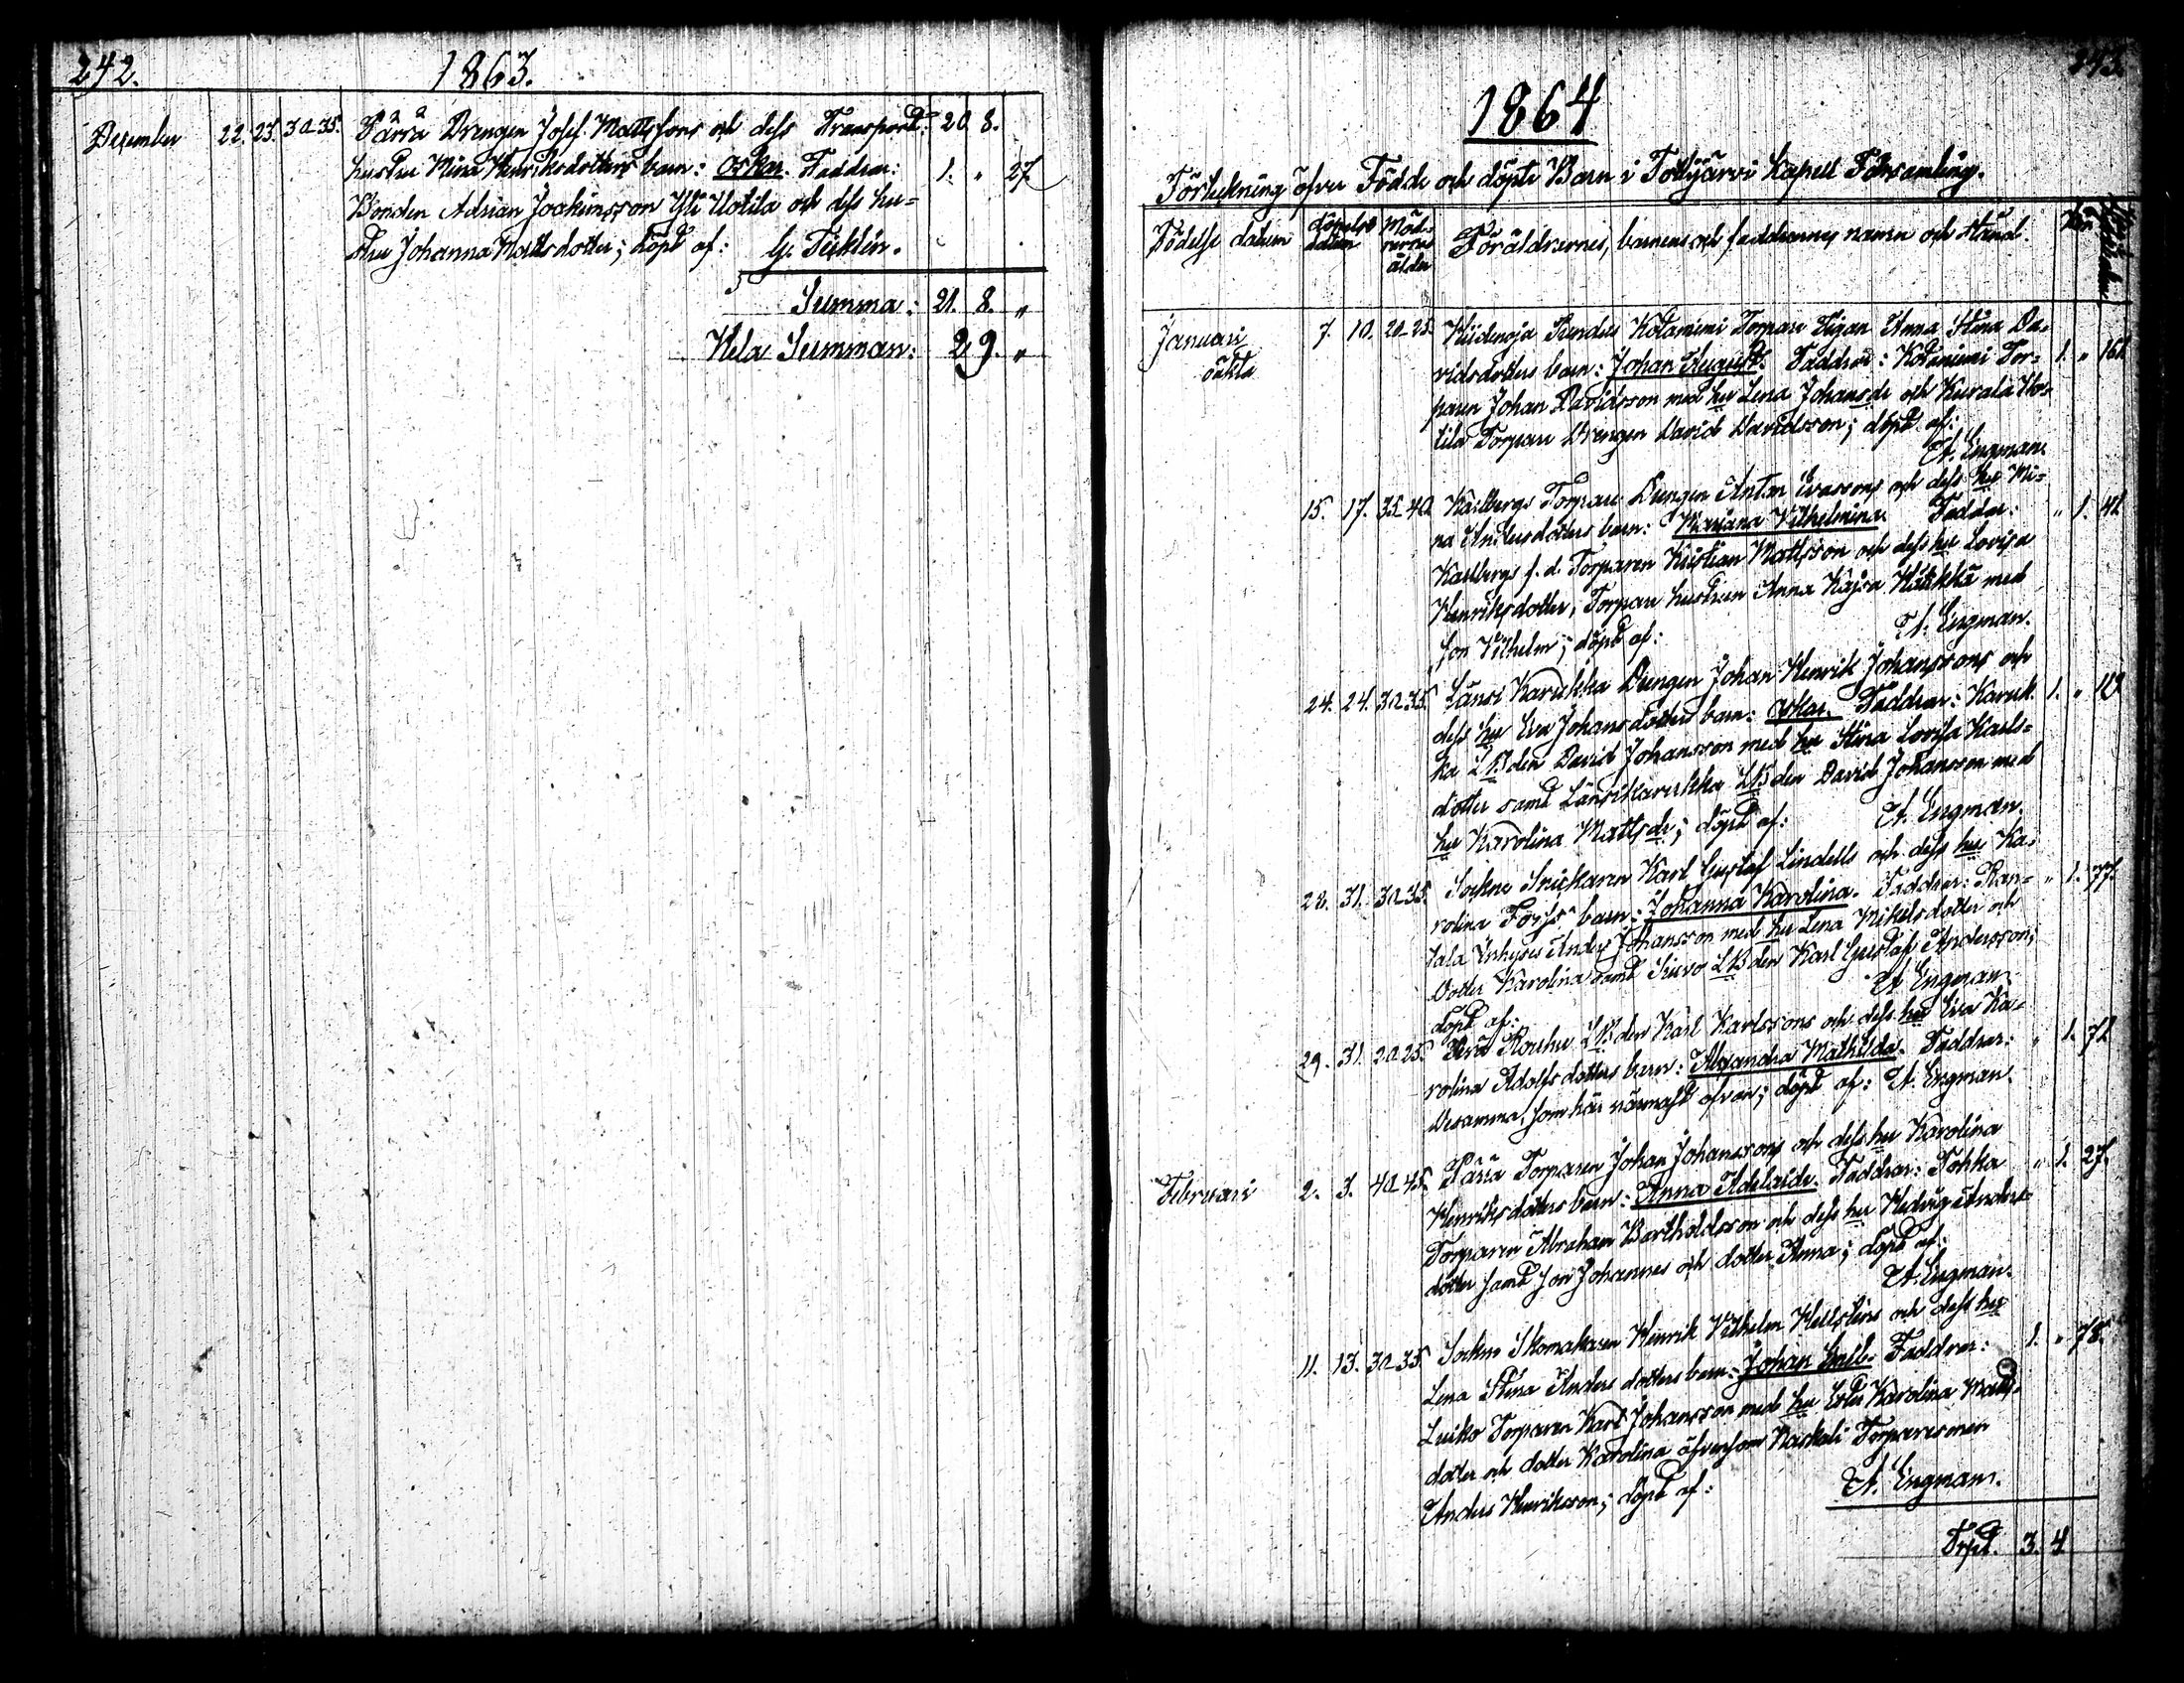 242.
1863.
Dezember 22. 23. 30-35. Pärrä Drengen Josef Mattssons och dess Transport: 20. 8.
hustru Mina Henriksdotters barn: Oskar. Faddrar: 1. " 27.
Bonden Adrian Joakimsson Yli Uotila och dess hu-
stru Johanna Mattsdotter; döpt af: G. Ticklén.
Summa: 21. 8. "
Hela Summan: 29. "
243.
1864
Förtekning öfver Födde och döpte Barn i Tottijärvi Kapell Församling.
Födelse datum döpelse datum Mödrarnes ålder Föräldrarnes, barnens och faddrarnes namn och stånd. Kön
Januari 7. 10. 20-25. Hiidenoja Sundes Kotaniemi Torpare Pigan Anna Stina Da-
oäkta vidsdotters barn: Johan August. Faddrar: Kotaniemi Tor- 1. " 161.
paren Johan Davidsson med hu Lena Johansdr och Kurala Uo-
tila Torpare Drengen David Davidsson; döpt af:
A. Engman.
15. 17. 35-40. Karlbergs Torpare Drengen Anton Evassons och dess hu Mi-
na Andersdotters barn: Mariana Vilhelmina. Faddrar: " 1. 41.
Karlbergs f. d. Torparen Kristian Mattsson och dess hu Lovisa
Henriksdotter, Torpare hustrun Anna Kajsa med
son Vilhelm; döpt af: A. Engman.
24. 24. 30-35. Länsi Karukka Drengen Johan Henrik Johanssons och
dess hu Eva Johansdotters barn: Oskar. Faddrar: Karuk- 1. "
ka LBden David Johansson med hu Stina Lovisa Karls-
dotter samt Länsikarukka LBden David Johansson med
hu Karolina Mattsdr; döpt af: A. Engman.
28. 31. 30-35. Sockne Snickaren Karl Gustaf Lindells och dess hu Ka-
rolina Forss' barn: Johanna Karolina. Faddrar: Ran- " 1. 77.
tala Inhyses Anders Johansson med hu Lena Mikelsdotter och
dotter Karolina samt LBden Karl Gustaf Andersson;
döpt af: A. Engman.
29. 31. 20-25. Perä Rouhu LBden Karl Karlssons och dess hu Eva Ka-
rolina Adolfsdotters barn: Alexandra Mathilda. Faddrar: " 1. 71.
Desamma, som här närmast ofvan; döpt af: A. Engman.
Februari 2. 3. 40-45. Pärrä Torparen Johan Johanssons och dess hu Karolina
Henriksdotters barn: Anna Adelaide. Faddrar: Tohka " 1. 27.
Torparen Abraham Bartholdsson och dess hu Hedvig Anders-
dotter samt son Johannes och dotter Anna; döpt af:
A. Engman.
11. 13. 30-35. Sockne Skomakaren Henrik Vilhelm Hellsténs och dess hu
Lena Stina Andersdotters barn: Johan Emil. Faddrar: 1. " 78.
Luiko Torparen Karl Johansson med hu Karolina Matts-
dotter och dotter Karolina äfvensom Kaskali Torparesonen
Anders Henriksson; döpt af: A. Engman.
Trpt. 3. 4.